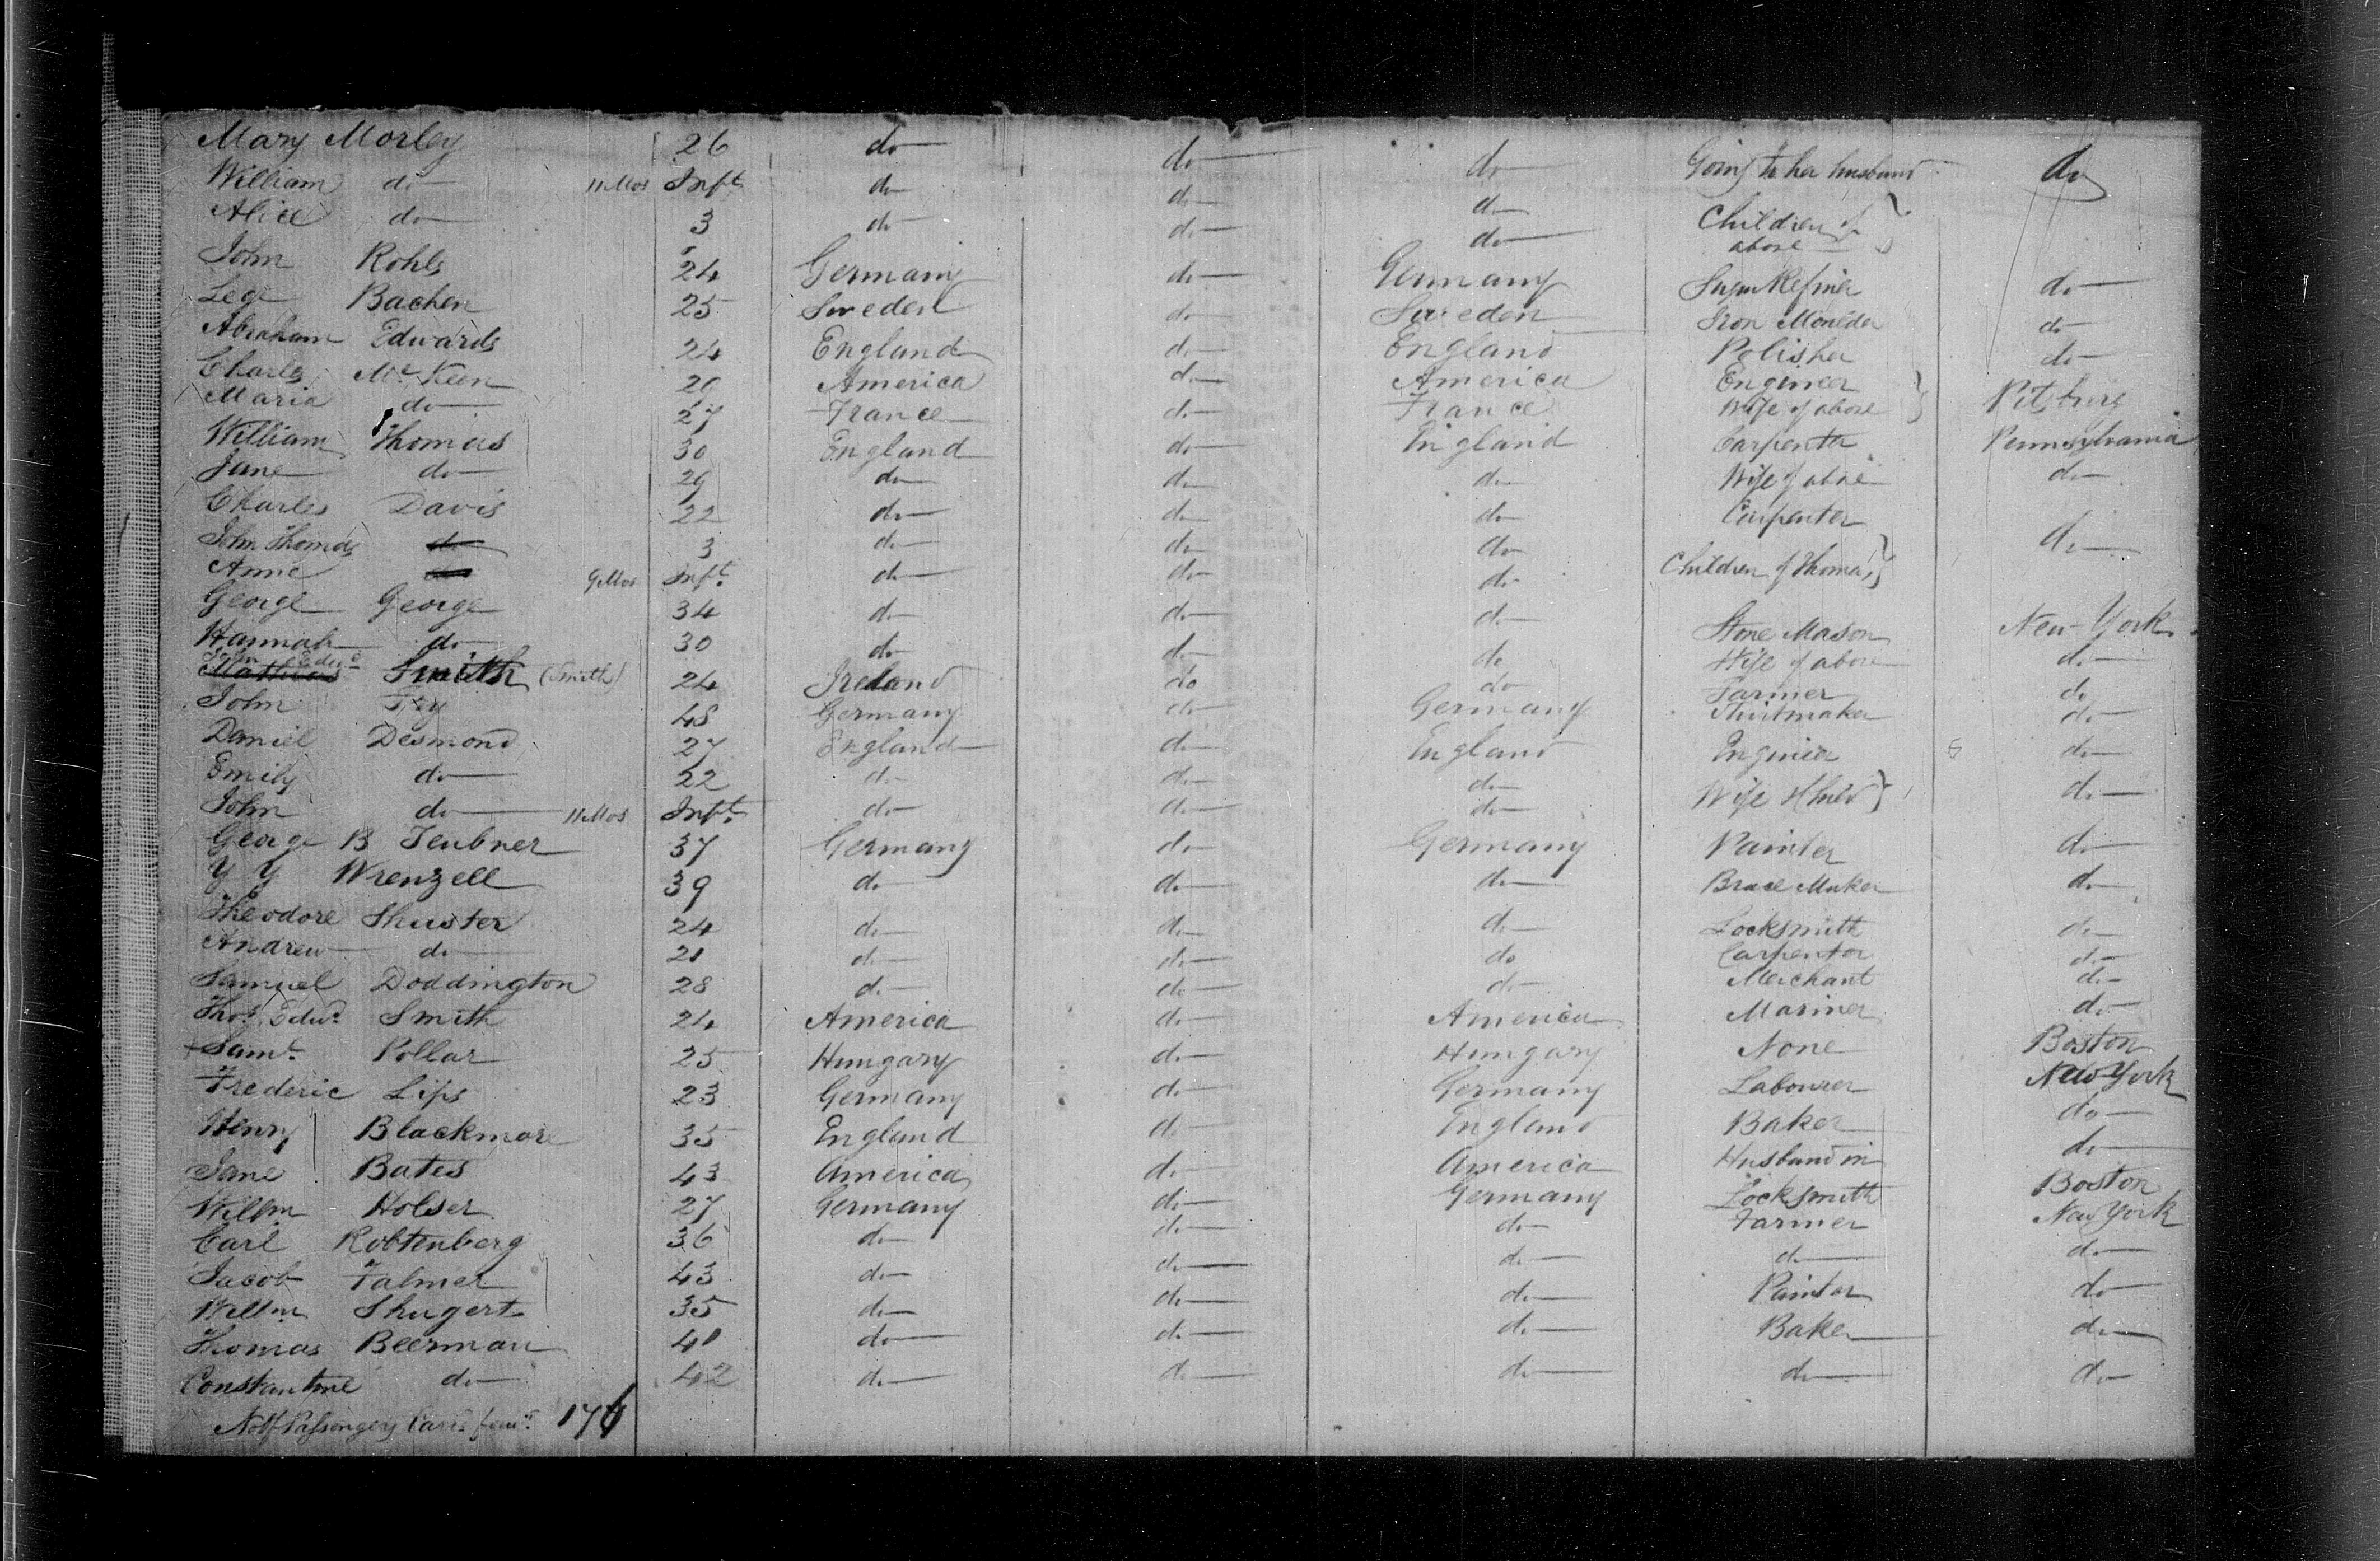 Mary Morley 26 do do do Going to her husband do
William do 11 Mos Inft do do do
Alice do 3 do do do Children of above
John Rohls 24 Germany do Germany Sugar Refiner do
Lege Bachen 25 Sweden do Sweden Iron Moulder do
Abraham Edwards 24 England do England Polisher do
Charles McKeen 29 America do America Engineer Pitsburg
Maria do 27 France do France Wife of above
William Thomas 30 England do England Carpenter Pennsylvania
Jane do 29 do do do Wife of above do
Charles Davis 22 do do do Carpenter
John Thomas do 3 do do do Children of Thomas do
Anne do 9 Mos Inft. do do do
George George 34 do do do Stone Mason New York
Hannah do 30 do do do Wife of above do
John Edwd Mathias Smith (Smith) 24 Ireland do do Farmer do
John Fry 48 Germany do Germany do
Daniel Desmond 27 England do England Enginier do
Emily do 22 do do do Wife & Child do
John do 11 Mos Inft. do do do
George B Teubner 37 Germany do Germany Painter do
Y Y Wrenzell 39 do do do Brace Maker do
Theodore Shuster 24 do do do Locksmith do
Andrew do 21 do do do Carpentor do
Samuel Doddington 28 do do do Merchant do
Thos. Edwd. Smith 24 America do America Mariner do
Saml. Pollar 25 Hungary do Hungary None Boston
Frederic Lips 23 Germany do Germany Labourer New York
Henry Blackmore 35 England do England Baker do
Jane Bates 43 America do America Husband in do
Willm Holser 27 Germany do Germany Locksmith Boston
Carl Robtenberg 36 do do do Farmer New York
Jacob Falmer 43 do do do do do
Willm Shugert 35 do do do Painter do
Thomas Beerman 41 do do do Baker do
Constantine do 42 do do do do do
No of Passengers 176